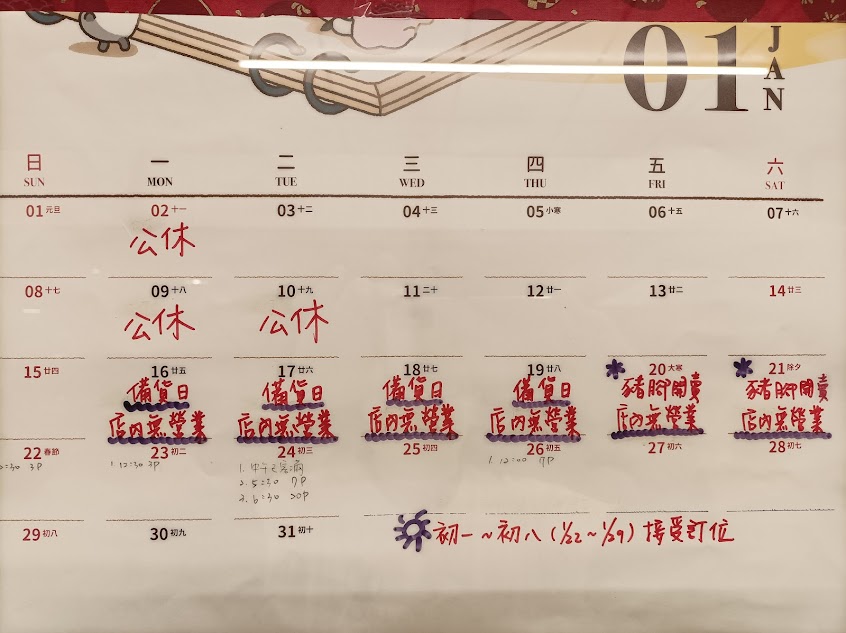 01
JAN
日 一 二 三 四 五 六
SUN MON TUE WED THU FRI SAT
01 元旦 02 十一 03 十二 04 十三 05 小寒 06 十五 07 十六
公休
08 十七 09 十八 10 十九 11 二十 12 廿一 13 廿二 14 廿三
公休 公休
15 廿四 16 廿五 17 廿六 18 廿七 19 廿八 20 大寒 21 除夕
備貨日 備貨日 備貨日 備貨日 豬腳開賣 豬腳開賣
店內無營業 店內無營業 店內無營業 店內無營業 店內無營業 店內無營業
22 春節 23 初二 24 初三 25 初四 26 初五 27 初六 28 初七
:30 3P 1. 12:30 3P 1. 中午已客滿 1. 12:00 7P
2. 5:30 7P
3. 6:30 20P
29 初八 30 初九 31 初十
初一~初八(1/22~1/29)接受訂位